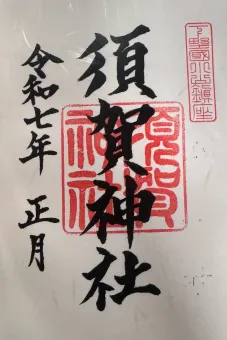 下野國小山鎮座
須賀神社
須賀神社
令和七年 正月